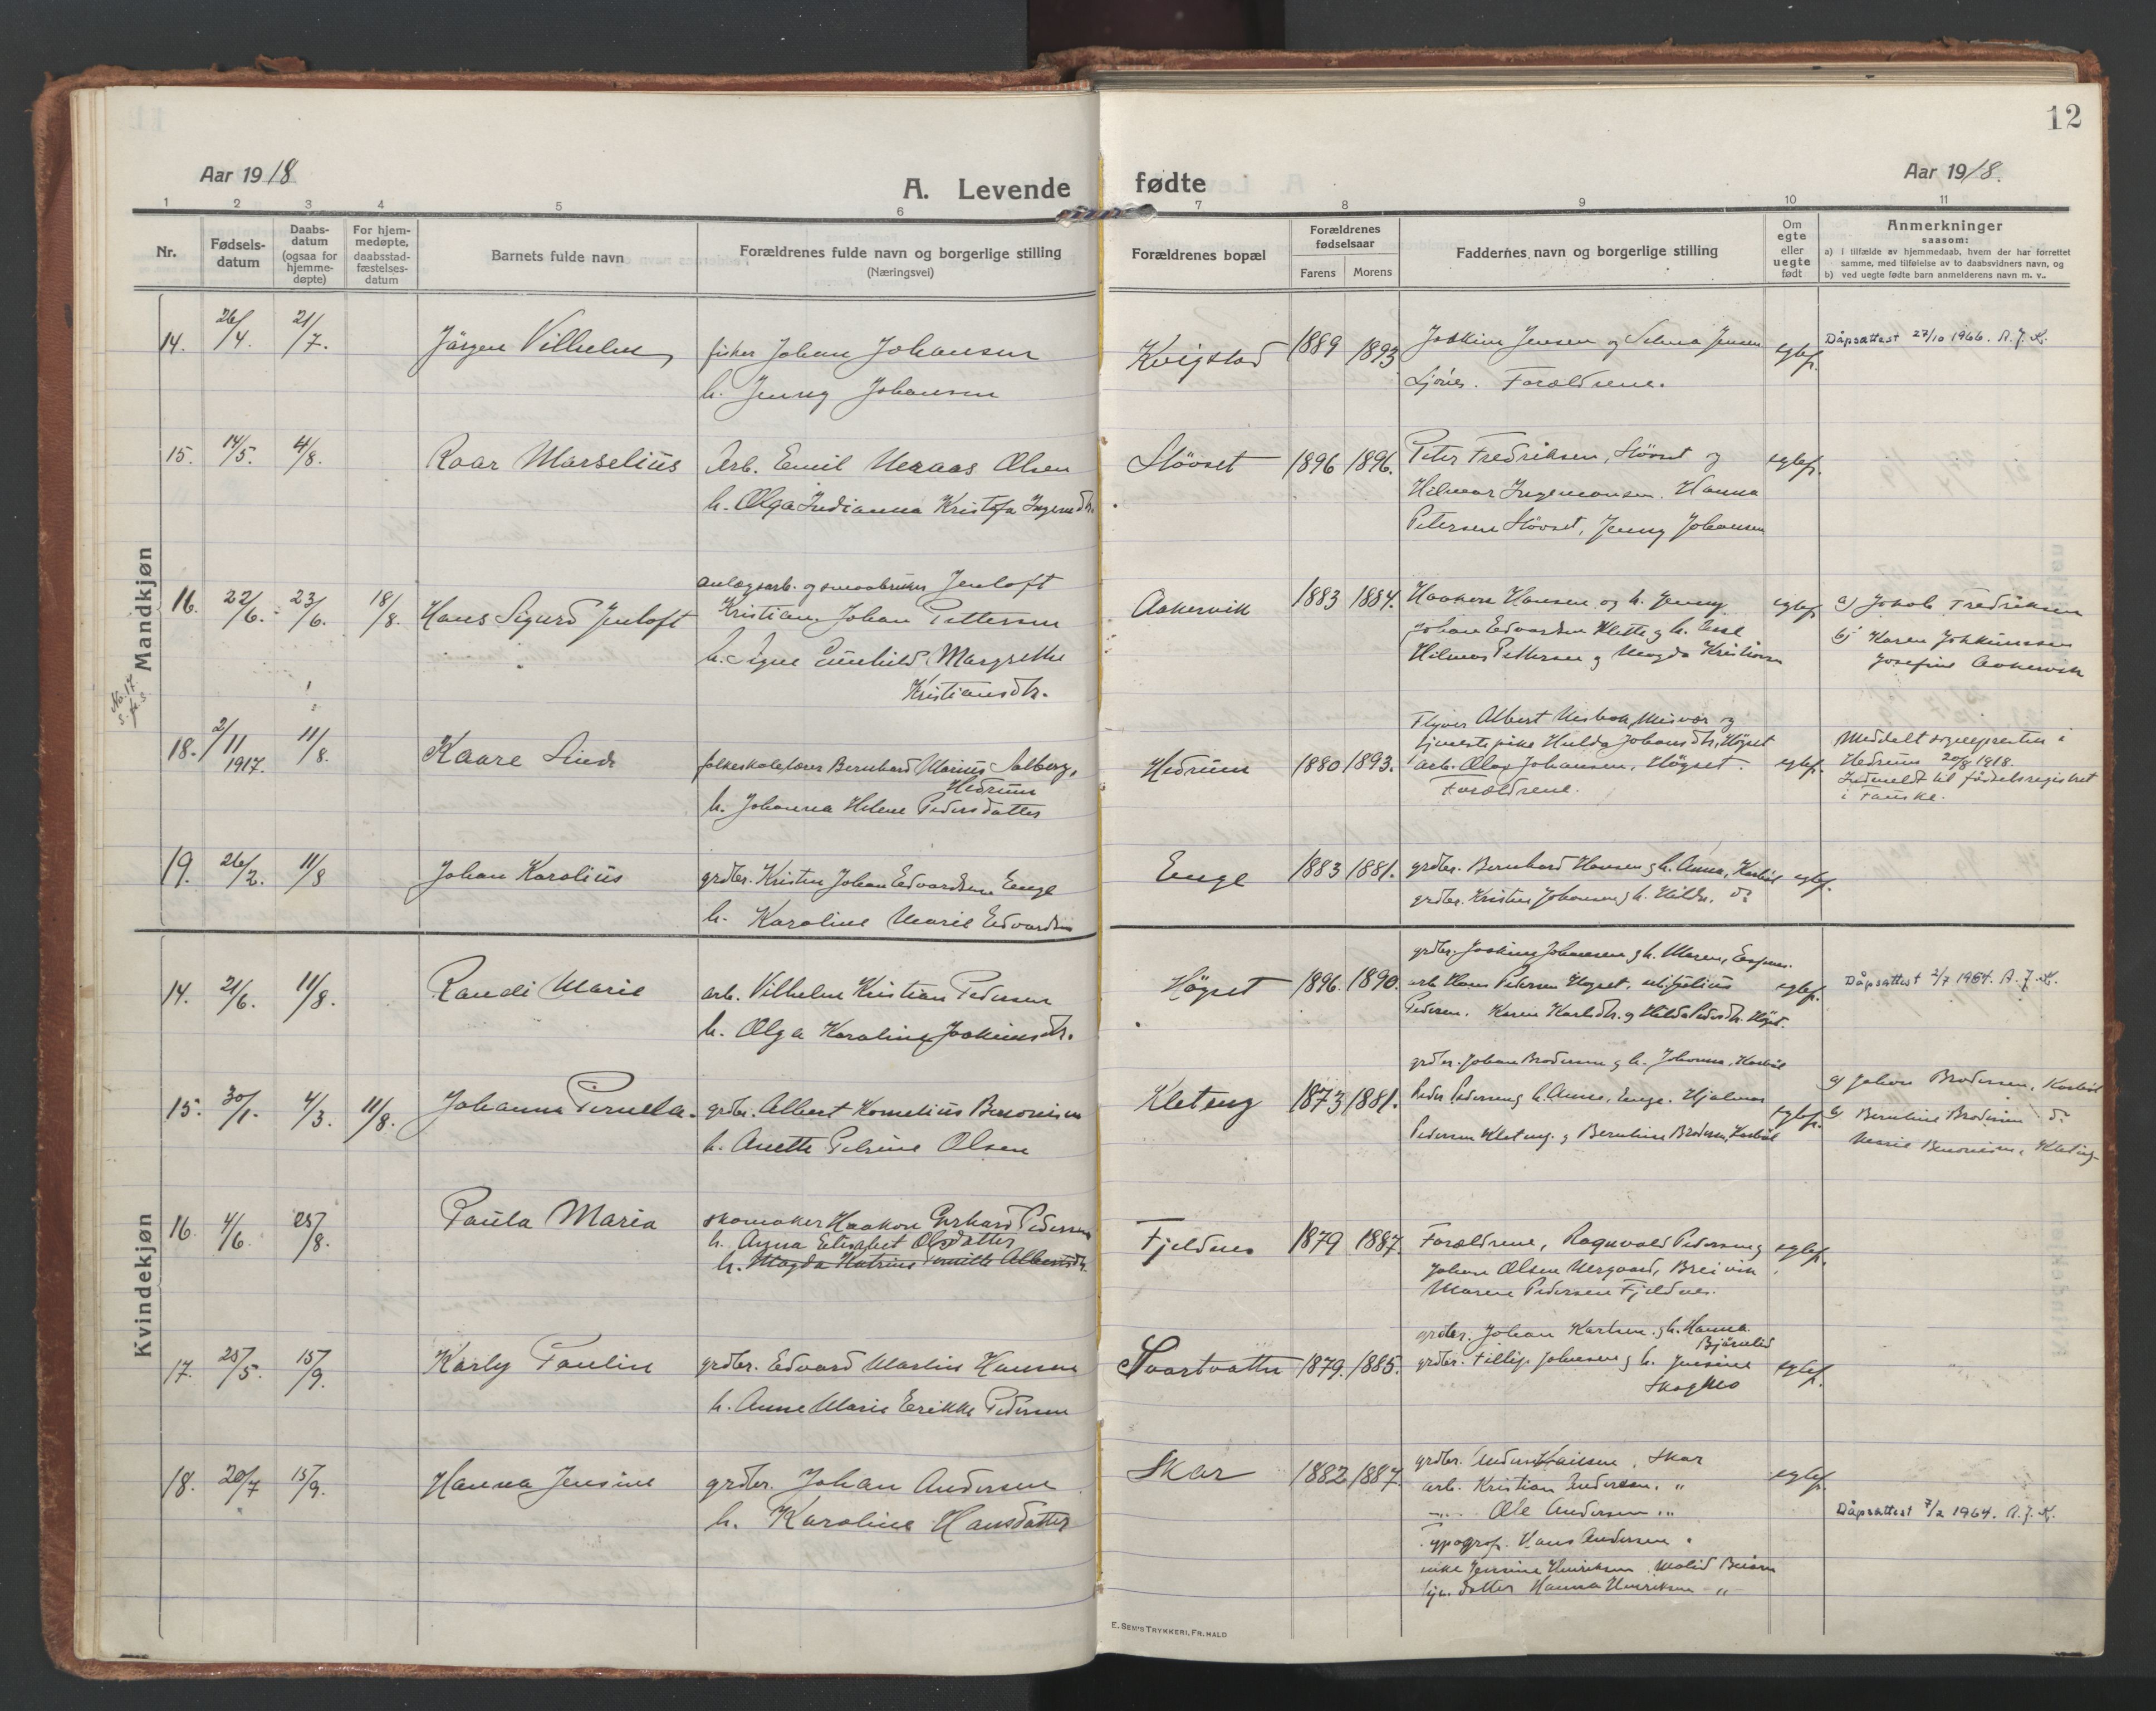 12
Aar 1918
A. Levende fødte
Aar 1918.
1 2 3 4 5 6 7 8 9 10 11
Nr.
Fødsels-
datum
Daabs-
datum
(ogsaa for
hjemme-
døpte)
For hjem-
medøpte,
daabsstad-
fæstelses-
datum
Barnets fulde navn
Forældrenes fulde navn og borgerlige stilling
(Næringsvei)
Forældrenes bopæl
Forældrenes
fødselsaar
Farens Morens
Faddernes navn og borgerlige stilling
Om
egte
eller
uegte
født
Anmerkninger
saasom:
a) i tilfælde av hjemmedaab, hvem der har forrettet
samme, med tilføielse av to daabsvidners navn, og
b) ved uegte fødte barn anmelderens navn m. v..
Mandkjøn
14. 26/4. 21/7. Jørgen Vilhelm, fisker Johan Johansen
h. Jenny Johansen
Kvigstad 1889 1893. Joakim Jensen og Selma Jensen
Forældrene.
egtef.
Dåpsattest 27/10 1966. A.J.K.
15. 14/5. 4/8. Roar Marselius Arb. Emil Olsen
h. Olga Indianna Kristofa
Støvset 1896 1896. Peter Fredriksen, Støvset og
Hilmar Ingemansen. Hanna
Petersen Støvset, Jenny Johansen
egtef.
16. 22/6. 23/6. 18/8. Hans Sigurd Jenloft
anlægsarb. og smaabruker Jenloft
Kristian Johan Pettersen
h. Signe Gunhild Margrethe
Kristiansdtr.
Aakervik 1883 1884. Haakon Hansen og h. Jenny
Johan Edvardsen Klette og h.
Hilmar Pettersen og Magda Kristiansen
egtef.
a) Jakob Fredriksen
b) Karen Joakimsen
Josefine Aakervik
No. 17
s. f. s.
18. 2/11 1917. 11/8. Kaare Lind
folkeskolelærer Bernhard Marius Solberg,
Hedrum
h. Johanna Helene Pedersdatter
Hedrum 1880 1893. Albert Misvær og
tjenestepike Hulda Johansdtr, Høgset
arb. Olav Johansen, Høgset.
Forældrene.
egtef.
Meddelt sognepresten i
Hedrum 20/8 1918.
Indmeldt til fødselsregistret
i Fauske.
19. 26/2. 11/8 Johan Karolius
grdbr. Kristen Johan Edvardsen Enge
h. Karoline Marie Edvardsen
Enge 1883 1881. grdbr. Bernhard Hansen og h. Anna,
grdbr. Kristen Johansen og h. Hilda, do
egtef.
Kvindekjøn
14. 21/6. 11/8. Randi Marie
arb. Vilhelm Kristian Pedersen
h. Olga Karoline Joakimsdtr.
Høgset 1896. 1890. grdbr. Joakim Johansen og h. Maren,
arb. Hans Pedersen Høgset,
Pedersen. Karen Karlsdtr. og Hilda Pedersdtr. Høgset.
egtef.
Dåpsattest 2/7 1964. A.J.K.
15. 30/1. 4/3. 11/8. Johanna Pernella.
grdbr. Albert Kornelius Benonisen
h. Anette Petrine Olsen
Kleteng 1873 1881. grdbr. Johan Brodersen og h. Johanna,
Peder Pedersen og h. Anne, Enge. Hjalmar
Pedersen Kleteng. og Bernhine Brodersen,
egtef.
a) Johan Brodersen,
b) Bernhine Brodersen do
Marie Benonisen, Kleteng
16. 4/6. 25/8. Paula Maria
skomaker Haakon Gerhard Pedersen
h. Anna Elisabet Olsdatter
h. Magda Katrine Pernille Albertsdtr.
Fjeldnes 1879 1887. Forældrene, Ragnvald Pedersen og
Johan Olsen Nergaard, Breivik
Maren Pedersen Fjeldnes.
egtef.
17. 25/5. 15/9. Karly Paulin
grdbr. Edvard Martin Hansen
h. Anne Marie Erikke Pedersen
Svartvattn 1879. 1885. grdbr. Johan Karlsen og h. Hanna
Bjørnlid
grdbr. Fillip Johnsen og h. Jensine
Skogmo
egtef.
18. 20/7 15/9. Hanna Jensine
grdbr. Johan Andersen
h. Karoline Hansdatter
Skar 1882 1887. grdbr. Anders Hansen, Skar
arb. Kristian Andersen, "
" Ole Andersen "
Typograf. Hans Andersen "
enke Jensine Henriksen, Molid Beiarn
datter Hanna Henriksen "
egtef.
Dåpsattest 7/2 1964. A.J.K.
E. SEM'S TRYKKERI, FR. HALD